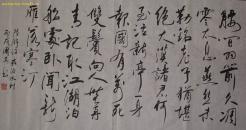 腰间羽箭久凋
零太息燕然未
勒铭老子犹堪
绝大漠诸君何
至泣新亭一身
報國有萬死
雙鬢向人無再
青记取江湖泊
船處卧闻新
雁落寒汀